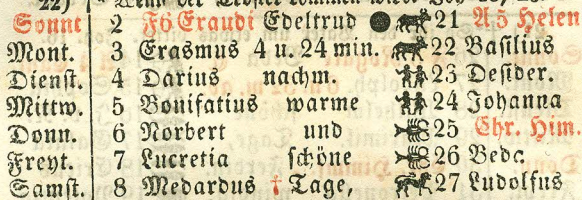 Sonnt 2 F6 Exaudi Edeltrud 21 A5 Helen
Mont. 3 Erasmus 4 u. 24 min. 22 Basilius
Dienst. 4 Darius nachm. 23 Desider.
Mittw. 5 Bonifatius warme 24 Johanna
Donn. 6 Norbert und 25 Chr. Him.
Freyt. 7 Lucretia schöne 26 Beda
Samst. 8 Medardus † Tage, 27 Ludolfus